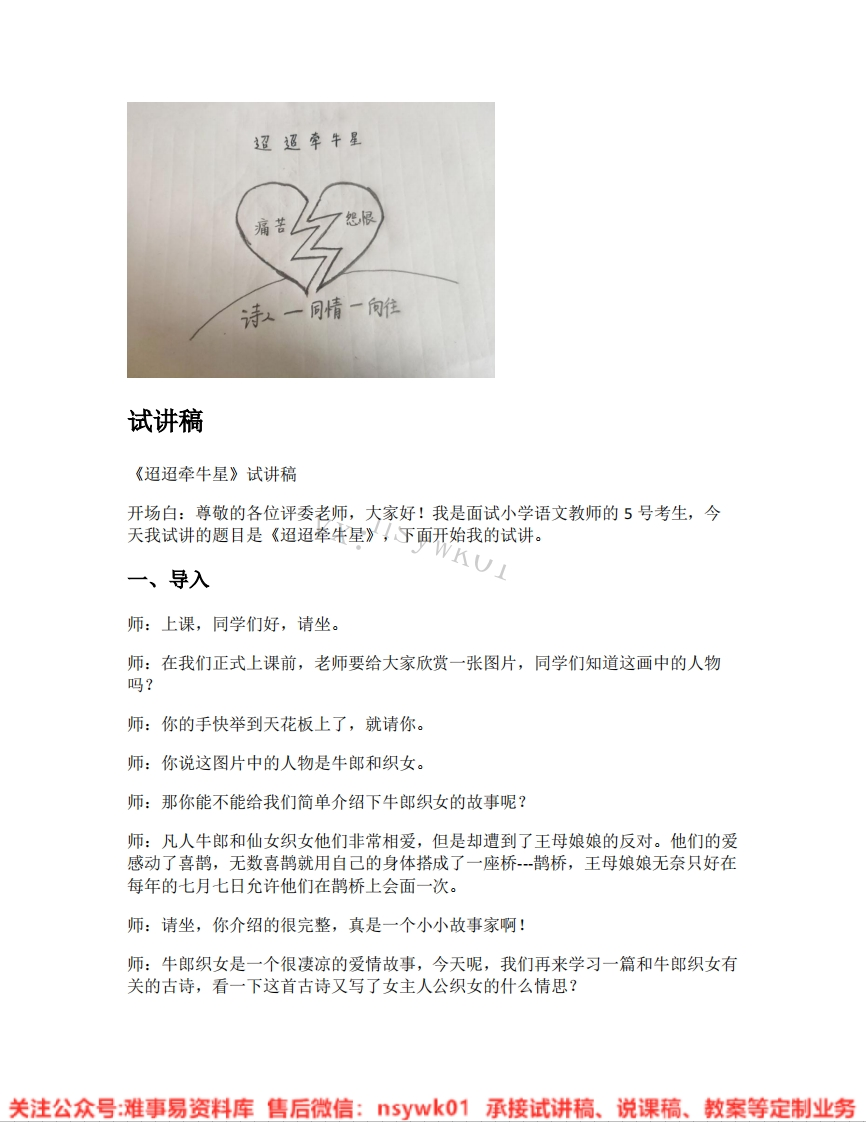 迢迢牵牛星
痛苦
怨恨
诗人一同情一向往
试讲稿
《迢迢牵牛星》试讲稿
开场白：尊敬的各位评委老师，大家好！我是面试小学语文教师的 5 号考生，今
天我试讲的题目是《迢迢牵牛星》，下面开始我的试讲。
vx:nsywk01
一、导入
师：上课，同学们好，请坐。
师：在我们正式上课前，老师要给大家欣赏一张图片，同学们知道这画中的人物
吗？
师：你的手快举到天花板上了，就请你。
师：你说这图片中的人物是牛郎和织女。
师：那你能不能给我们简单介绍下牛郎织女的故事呢？
师：凡人牛郎和仙女织女他们非常相爱，但是却遭到了王母娘娘的反对。他们的爱
感动了喜鹊，无数喜鹊就用自己的身体搭成了一座桥---鹊桥，王母娘娘无奈只好在
每年的七月七日允许他们在鹊桥上会面一次。
师：请坐，你介绍的很完整，真是一个小小故事家啊！
师：牛郎织女是一个很凄凉的爱情故事，今天呢，我们再来学习一篇和牛郎织女有
关的古诗，看一下这首古诗又写了女主人公织女的什么情思？
关注公众号:难事易资料库 售后微信：nsywk01 承接试讲稿、说课稿、教案等定制业务